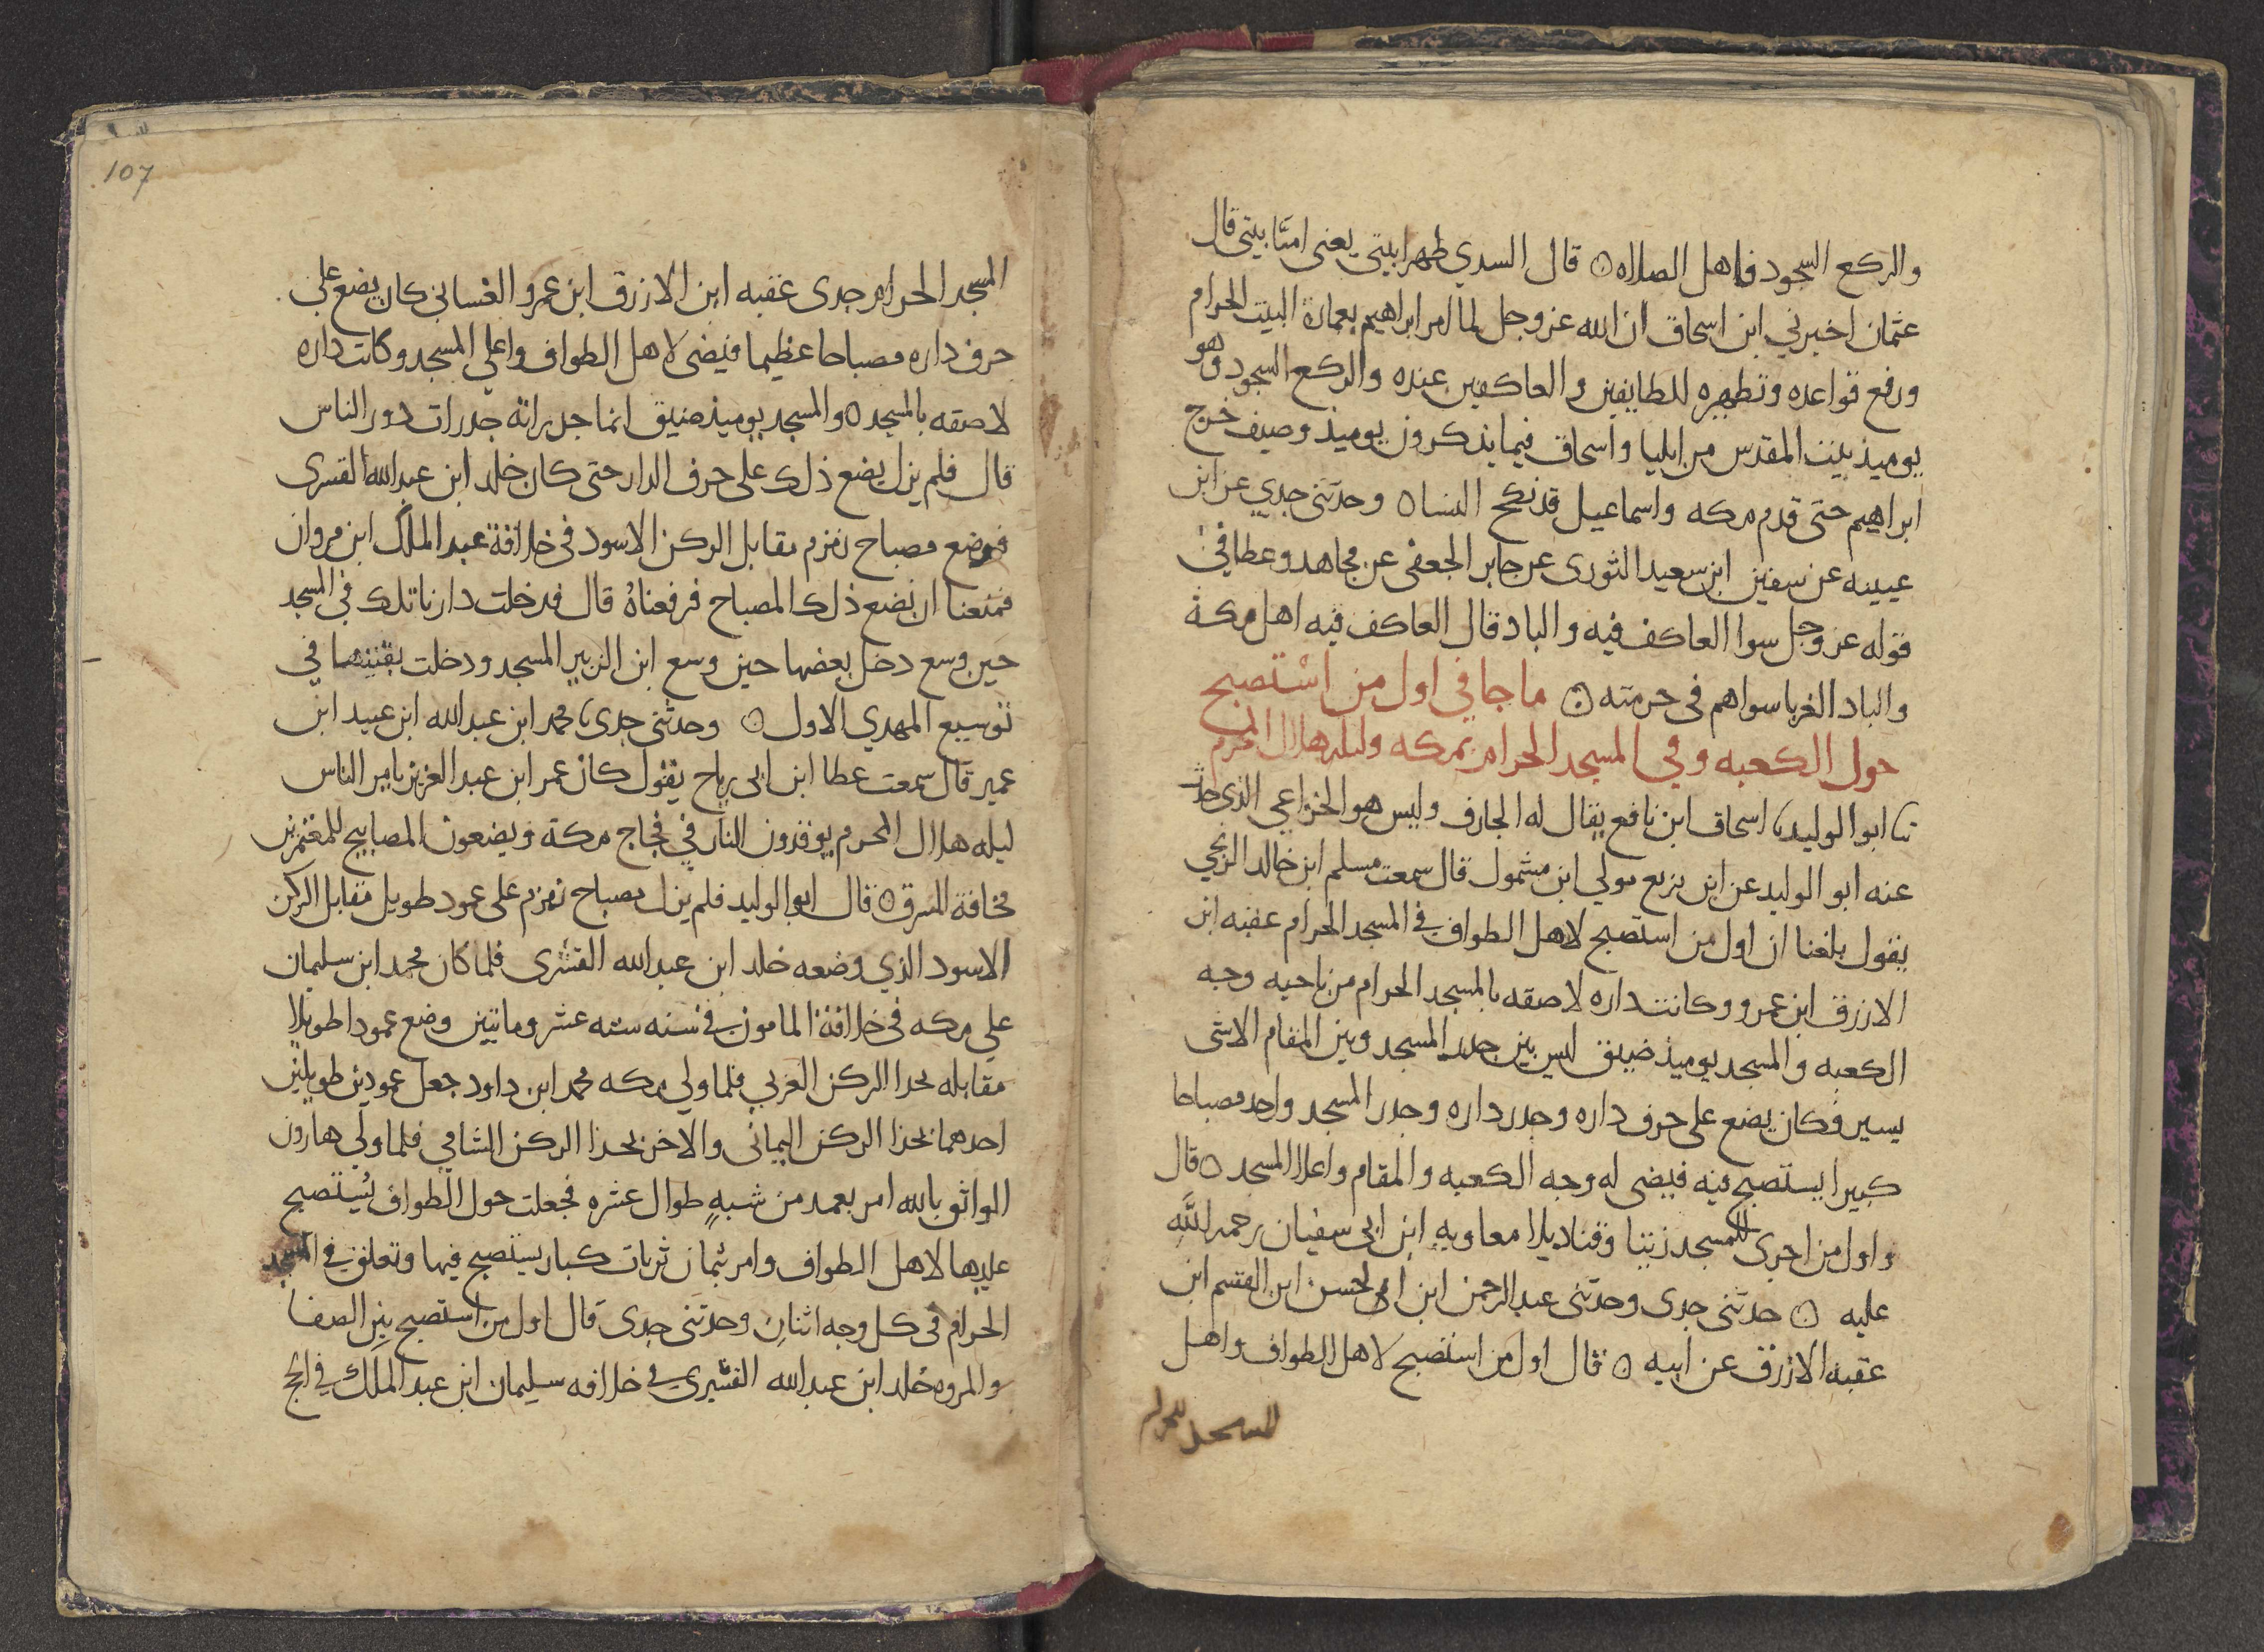 والركع السجود فاهل الصلاه ۞ قال السدي طهرا بيتي يعني امنا بيتي قال
عثمان اخبرني ابن اسحاق ان الله عز وجل لما امر ابراهيم بعمارة البيت الحرام
ورفع قواعده وتطهيره للطايفين والعاكفين عنده والركع السجود وهو
يوميذ ببيت المقدس من ايليا واسحاق فيما يذكرون يوميذ وصيف خرج
ابراهيم حتى قدم مكه واسماعيل قد نكح النسا ۞ وحدثني جدي عن ابن
عيينه عن سفين ابن سعيد الثوري عن جابر الجعفي عن مجاهد وعطا في
قوله عز وجل سوا العاكف فيه والباد قال العاكف فيه اهل مكة
والباد الغربا سواهم في حرمته ۞ ما جا في اول من استصبح
حول الكعبه وفي المسجد الحرام بمكه وليله هلال المحرم
ثنا ابو الوليد ثنا اسحاق ابن نافع يقال له الجارف وليس هو الخزاعي الذي حدث
عنه ابو الوليد عن ابن بزيع مولي ابن مشمول قال سمعت مسلم ابن خالد الزنجي
يقول بلغنا ان اول من استصبح لاهل الطواف في المسجد الحرام عقبه ابن
الازرق ابن عمرو وكانت داره لاصقه بالمسجد الحرام من ناحيه وجه
الكعبه والمسجد يوميذ ضيق ليس بين جدر المسجد وبين المقام الا شي
يسير فكان يضع على حرف داره وجدر داره وجدر المسجد واحد مصباحا
كبيرا يستصبح فيه فيضي له وجه الكعبه والمقام واعلا المسجد ۞ قال
واول من اجرى للمسجد زيتا وقناديلا معاويه ابن ابي سفيان رحمه الله
عليه ۞ حدثني جدي وحدثني عبد الرحمن ابن ابي الحسن ابن القسم ابن
عقبه الازرق عن ابيه ۞ قال اول من استصبح لاهل الطواف واهل
المسجد الحرام
107
المسجد الحرام جدي عقبه ابن الازرق ابن عمرو الغساني كان يضع على
حرف داره مصباحا عظيما فيضي لاهل الطواف واعلى المسجد وكانت داره
لاصقه بالمسجد ۞ والمسجد يوميذ ضيق انما جدراته جدرات دور الناس
قال فلم يزل يضع ذلك على حرف الدار حتى كان خلد ابن عبد الله القسري
فوضع مصباح زمزم مقابل الركن الاسود في خلافة عبد الملك ابن مروان
فمنعنا ان نضع ذلك المصباح فرفعناه قال فدخلت دارنا تلك في المسجد
حين وسع دخل بعضها حين وسع ابن الزبير المسجد ودخلت بقيتها في
توسيع المهدي الاول ۞ وحدثني جدي ثنا محمد ابن عبد الله ابن عبيد ابن
عمير قال سمعت عطا ابن ابي رباح يقول كان عمر ابن عبد العزيز يامر الناس
ليله هلال المحرم يوقدون النار في فجاج مكة ويضعون المصابيح للمعتمرين
مخافة السرق ۞ قال ابو الوليد فلم يزل مصباح زمزم على عمود طويل مقابل الركن
الاسود الذي وضعه خلد ابن عبد الله القسري فلما كان محمد ابن سليمان
علي مكه في خلافة المامون في سنه سته عشر ومايتين وضع عمودا طويلا
مقابله بحدا الركن الغربي فلما ولي مكه محمد ابن داود جعل عمودين طويلين
احدهما بحذا الركن اليماني والاخر بحذا الركن الشامي فلما ولي هارون
الواثق بالله امر بعمد من شبه طوال عشره فجعلت حول الطواف يستصبح
عليها لاهل الطواف وامر بثمان ثريات كبار يستصبح فيها وتعلق في المسجد
الحرام في كل وجه اثنان وحدثني جدي قال اول من استصبح بين الصفا
والمروه خلد ابن عبد الله القسري في خلافه سليمان ابن عبد الملك في الحج